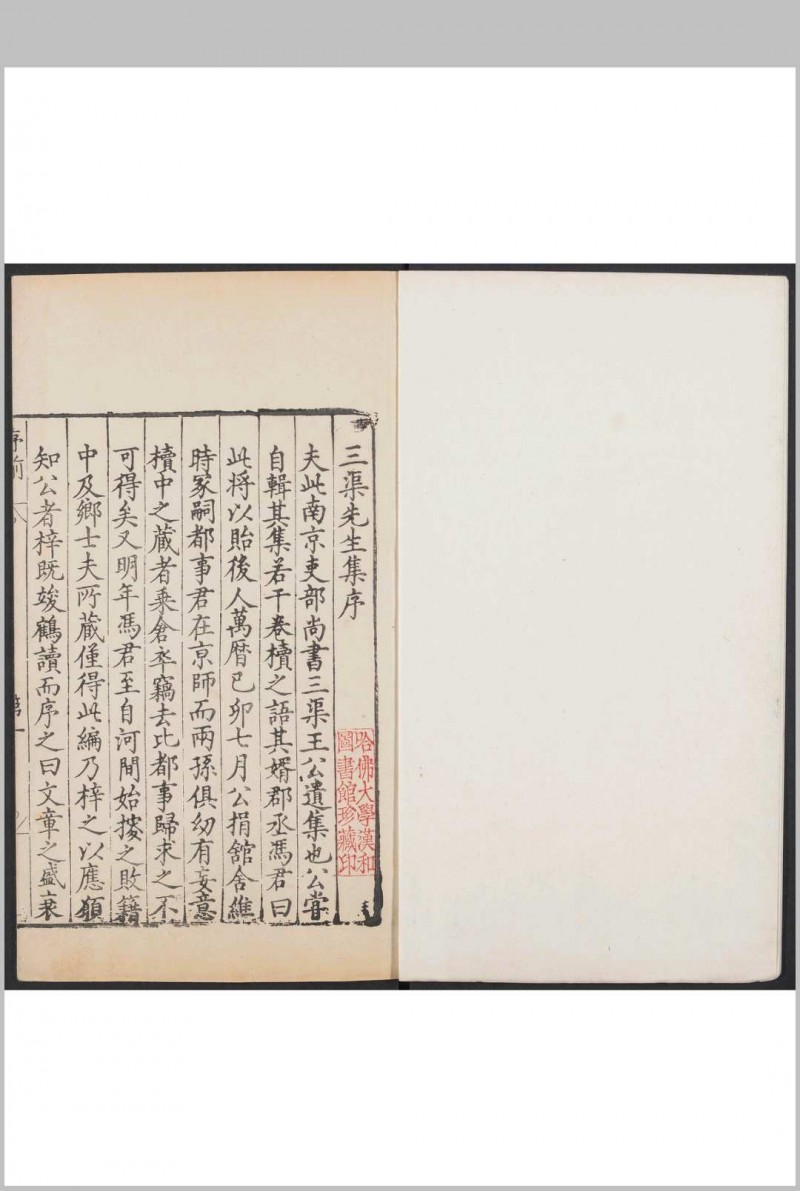 三渠先生集序
夫此南京吏部尚書三渠王公遺集也公嘗
自輯其集若干卷櫝之語其婿郡丞馮君曰
此将以貽後人萬曆己卯七月公捐舘舍維
時冢嗣都事君在京師而兩孫俱幼有妄意
櫝中之蔵者乘倉卒竊去比都事歸求之不
可得矣又明年馮君至自河間始掇之敗籍
中及鄉士夫所蔵僅得此編乃梓之以應願
知公者梓既竣鶴讀而序之曰文章之盛衰
序前
第一
哈佛大學漢和
圖書館珍藏印